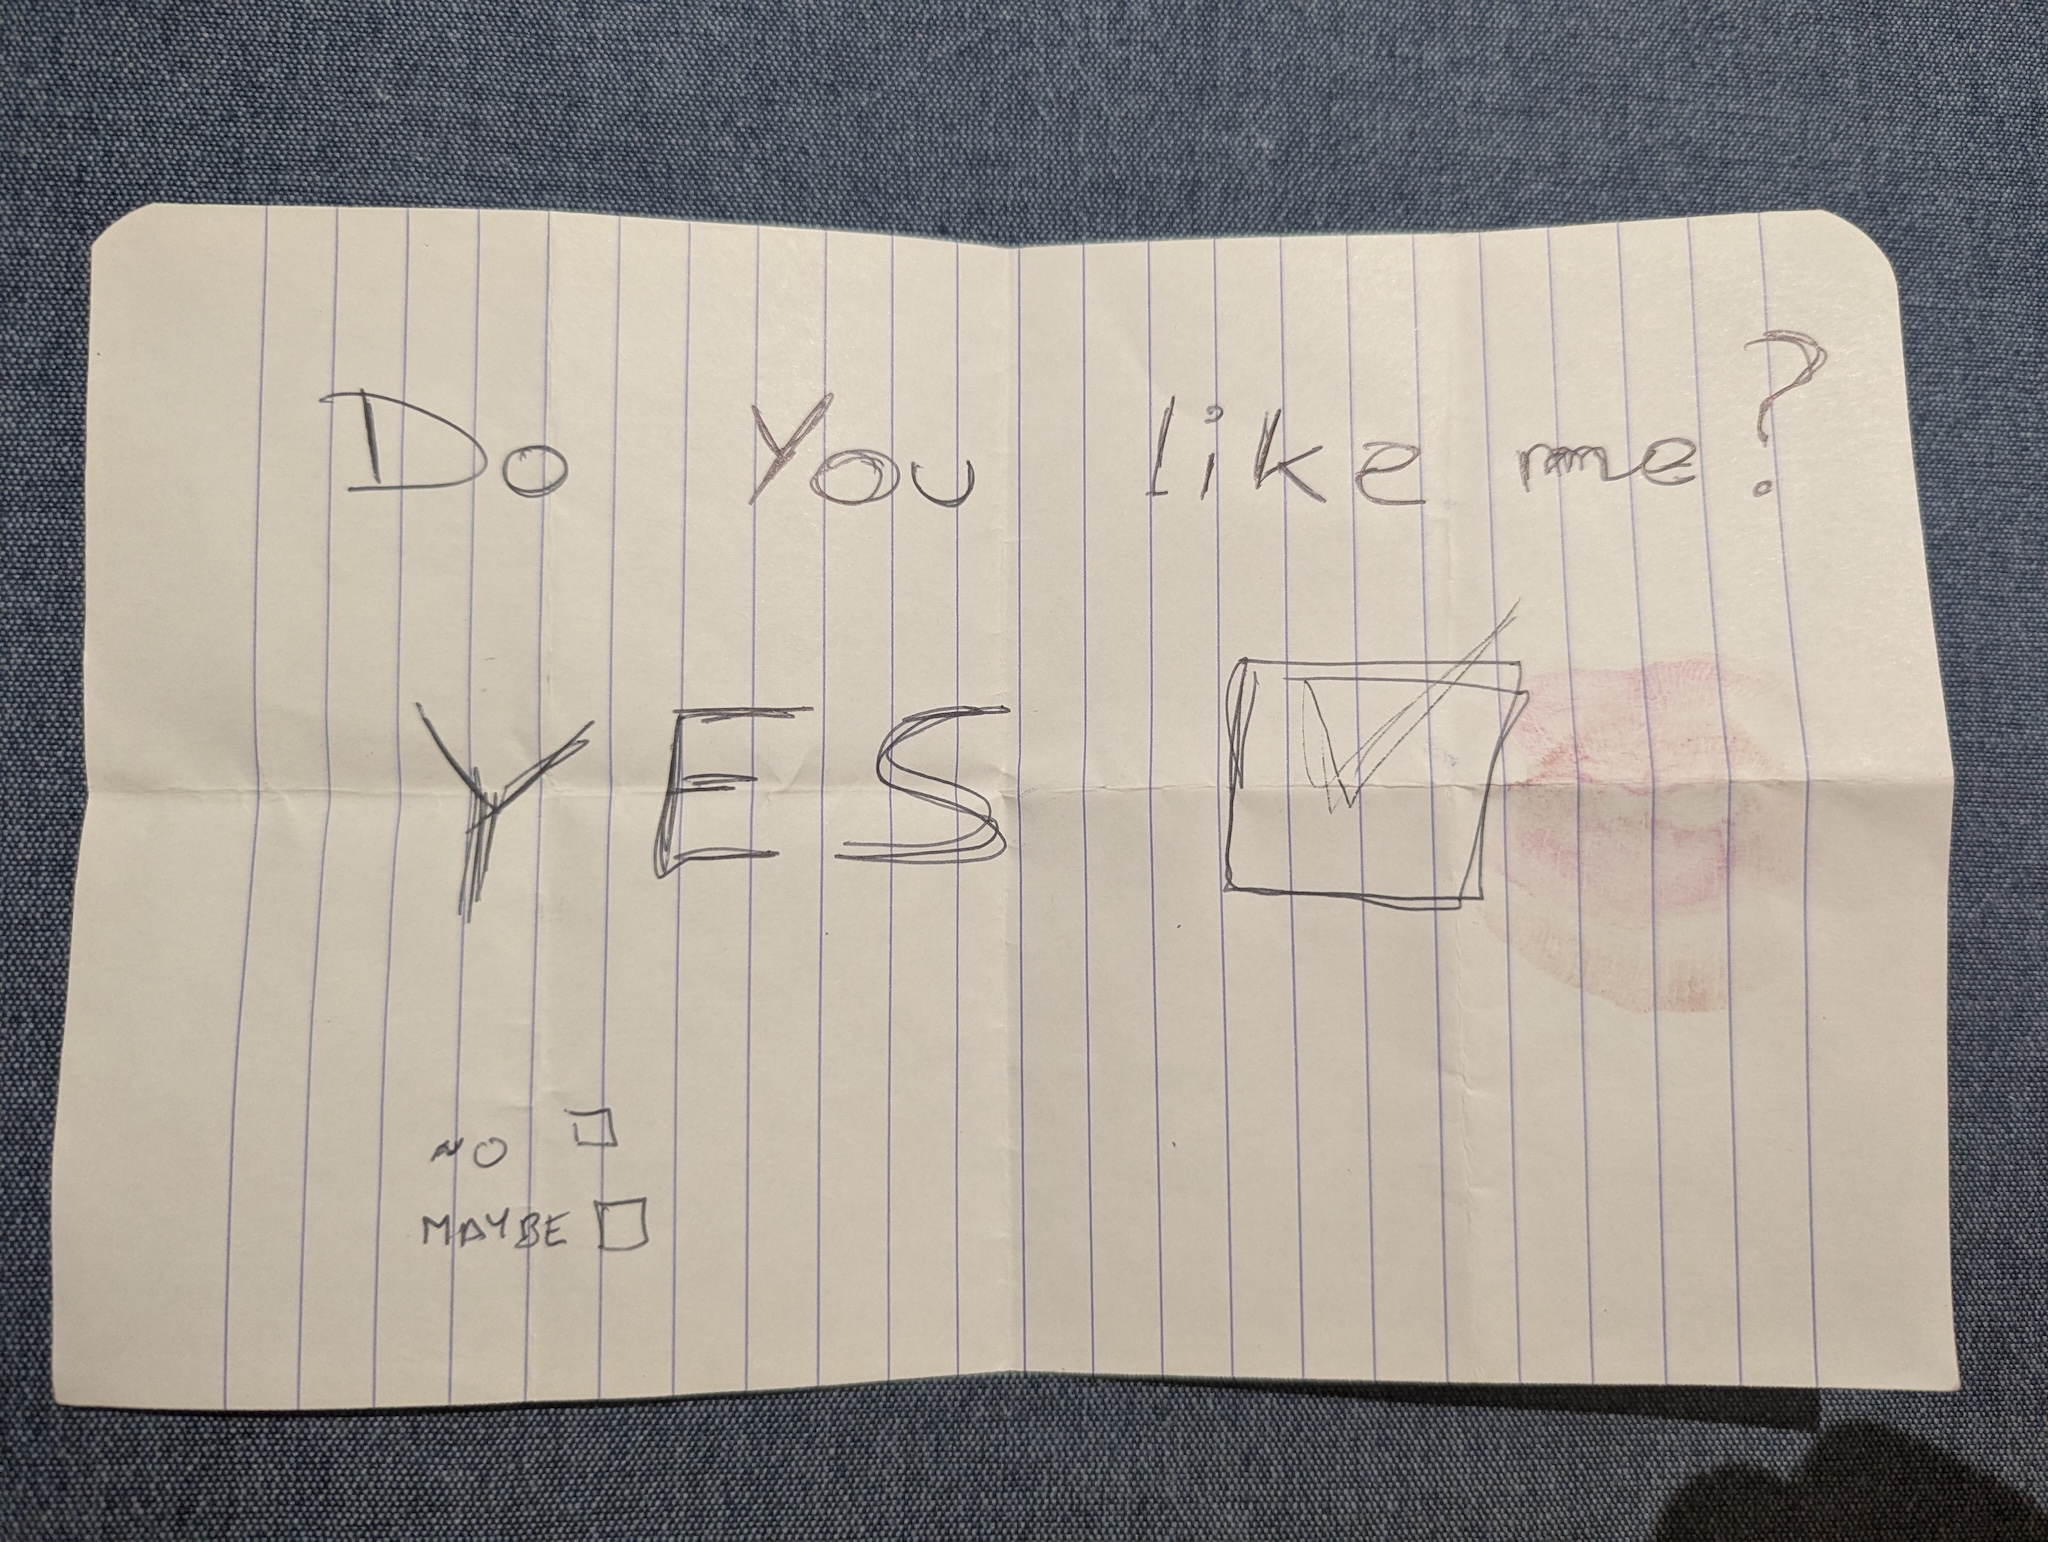 Do You like me?
YES ☑
NO ☐
MAYBE ☐